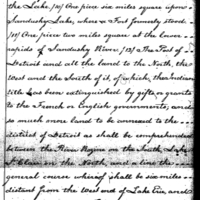 the Lake, [10] One piece six miles square upon
Sandusky Lake, where a Fort formerly stood.
[11] One piece two miles square at the lower
rapids of Sandusky River. [12] The Post of
Detroit and all the land to the North, the
West and the South of it, of which, the Indian
title has been extinguished by gifts or grants
to the French or English governments; and
so much more land to be annexed to the
district of Detroit as shall be comprehended
between the River Rosine on the South, Lake
St Clair on the North, and a line the
general course whereof shall be six miles
distant from the west end of Lake Erie, and